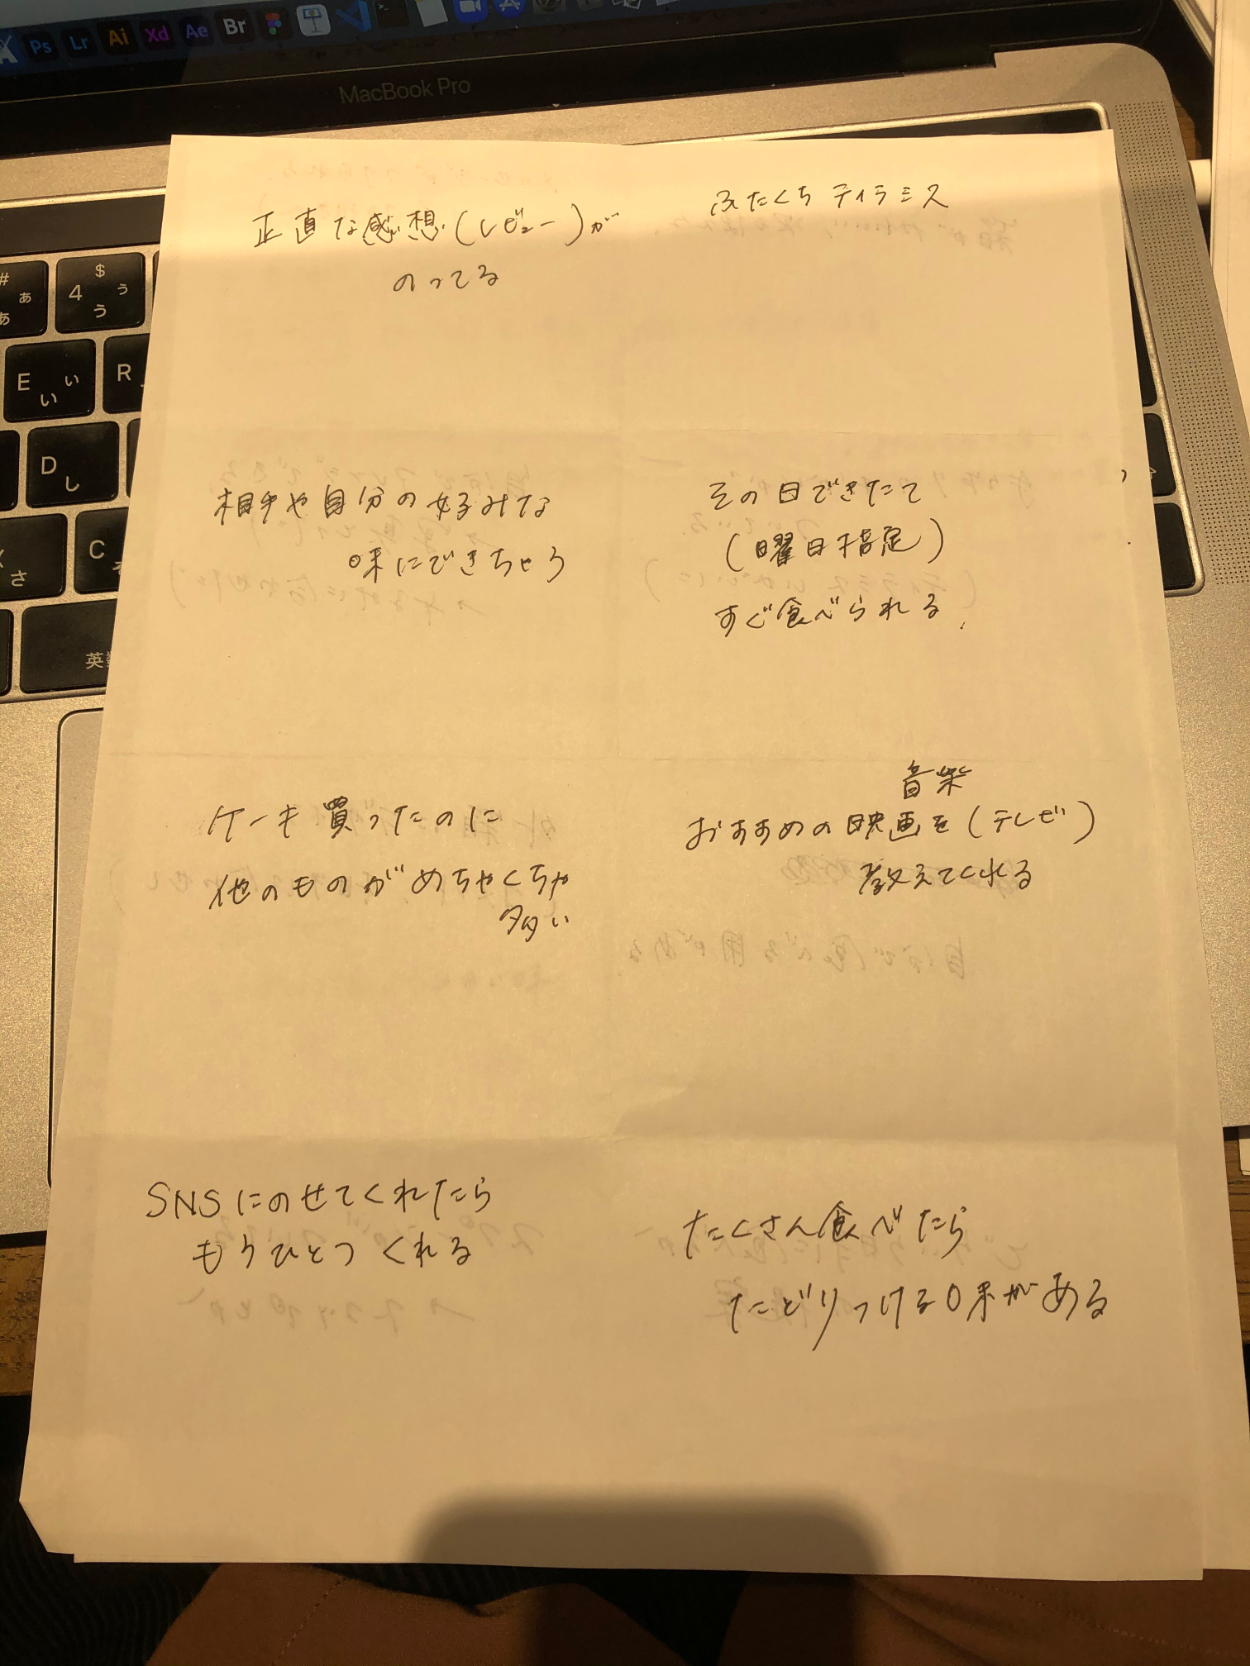 Ps Lr Ai Xd Ae Br
MacBook Pro
正直な感想(レビュー)が
のってる
ふたくちティラミス
相手や自分の好みな
味にできちゃう
その日できたて
(曜日指定)
すぐ食べられる
ケーキ買ったのに
他のものがめちゃくちゃ
多い
音楽
おすすめの映画を(テレビ)
教えてくれる
SNSにのせてくれたら
もうひとつくれる
たくさん食べたら
たどりつける味がある
# ぁ
あ
$ ぅ
4 う
E ぃ
い
R
D
し
さ
C
英数